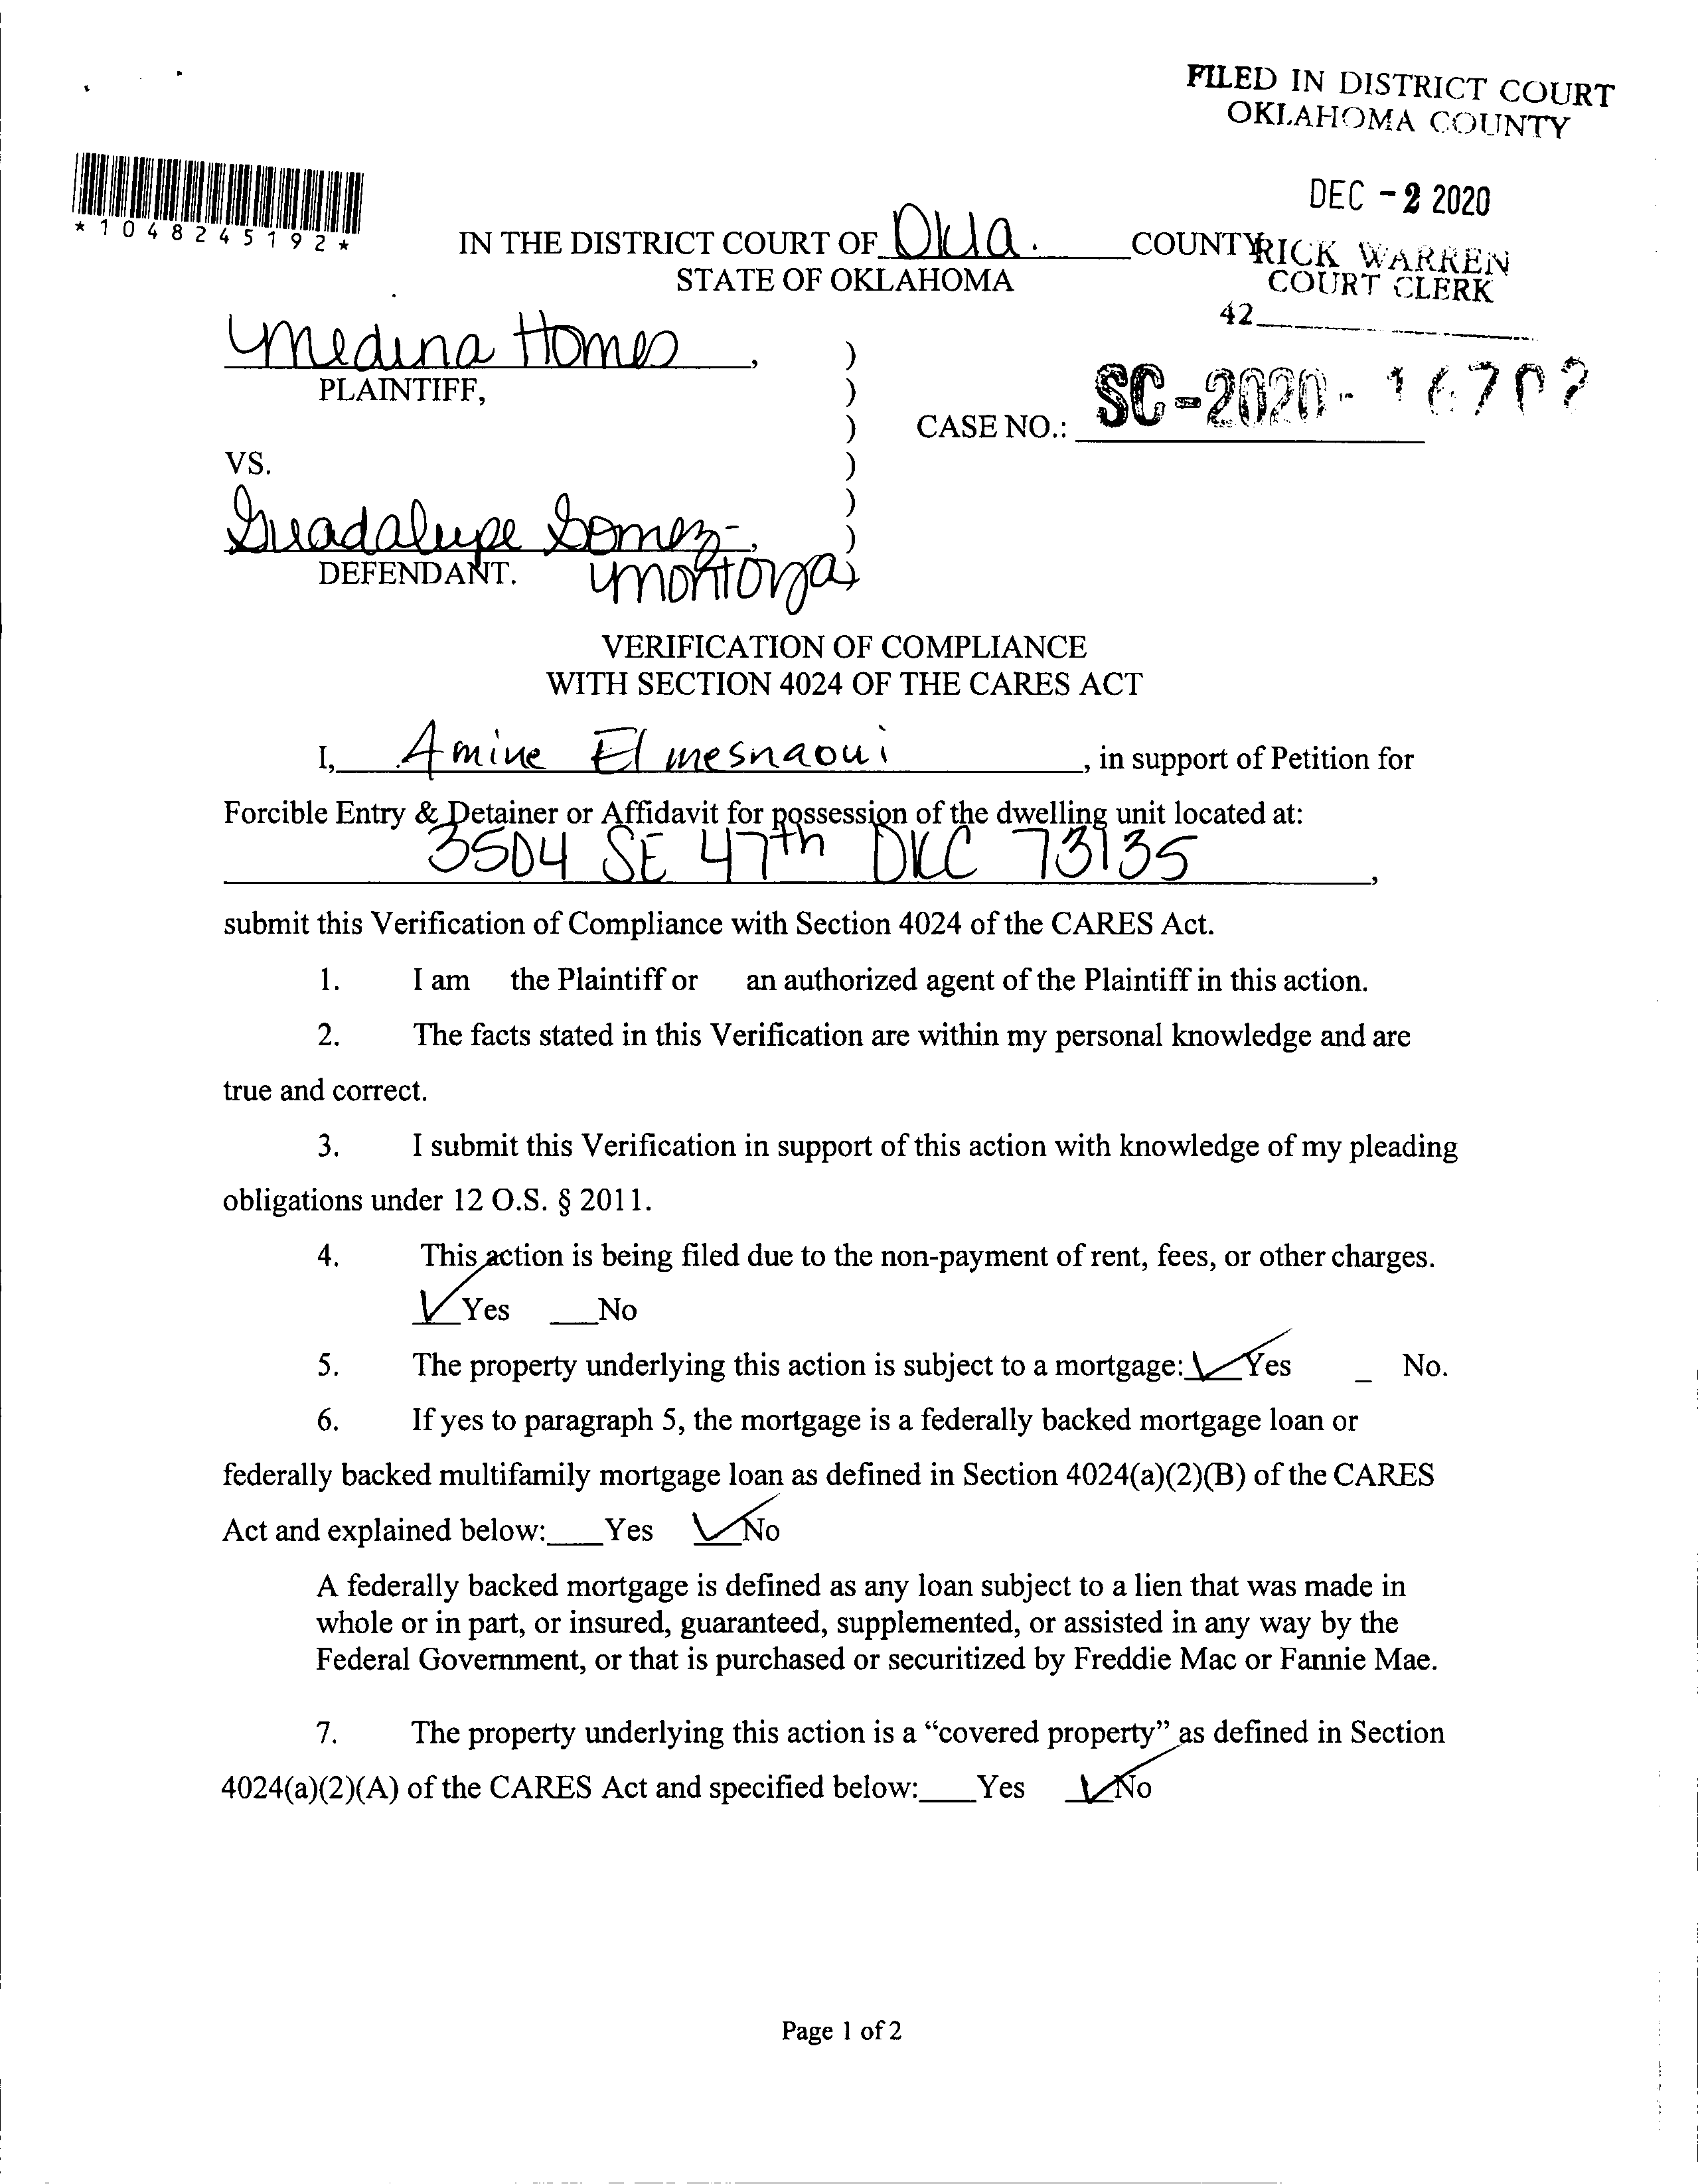 FILED IN DISTRICT COURT
OKLAHOMA COUNTY
DEC - 2 2020
*1048245192*
IN THE DISTRICT COURT OF Okla. COUNTY
RICK WARREN
STATE OF OKLAHOMA
COURT CLERK
42
Medina Homes, )
PLAINTIFF, )
SC-2020-16702
) CASE NO.:
VS. )
)
Guadalupe Gomez-, )
DEFENDANT. Montoya
VERIFICATION OF COMPLIANCE
WITH SECTION 4024 OF THE CARES ACT
I, Amine Elmesnaoui, in support of Petition for
Forcible Entry & Detainer or Affidavit for possession of the dwelling unit located at:
3504 SE 47th OKC 73135,
submit this Verification of Compliance with Section 4024 of the CARES Act.
1. I am the Plaintiff or an authorized agent of the Plaintiff in this action.
2. The facts stated in this Verification are within my personal knowledge and are
true and correct.
3. I submit this Verification in support of this action with knowledge of my pleading
obligations under 12 O.S. § 2011.
4. This action is being filed due to the non-payment of rent, fees, or other charges.
✓ Yes ___ No
5. The property underlying this action is subject to a mortgage: ✓ Yes _ No.
6. If yes to paragraph 5, the mortgage is a federally backed mortgage loan or
federally backed multifamily mortgage loan as defined in Section 4024(a)(2)(B) of the CARES
Act and explained below: ___ Yes ✓ No
A federally backed mortgage is defined as any loan subject to a lien that was made in
whole or in part, or insured, guaranteed, supplemented, or assisted in any way by the
Federal Government, or that is purchased or securitized by Freddie Mac or Fannie Mae.
7. The property underlying this action is a “covered property” as defined in Section
4024(a)(2)(A) of the CARES Act and specified below: ___ Yes ✓ No
Page 1 of 2